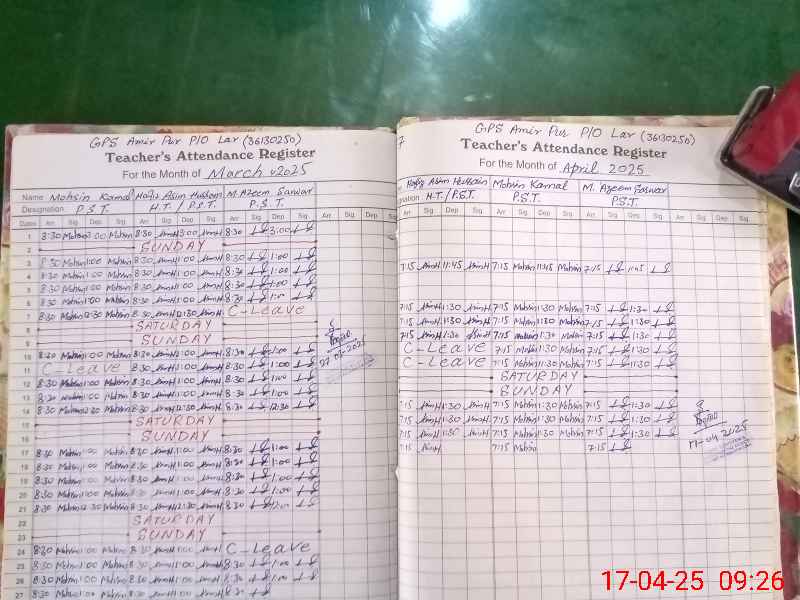 GPS Amir Pur P/O Lar (36130250)
Teacher's Attendance Register
For the Month of March 2025
Name Mohsin Kamal Hafiz Asim Hussain M. Azeem Sarwar
Designation P.S.T. H.T./P.S.T. P.S.T.
Dates Arr Sig Dep Sig Arr Sig Dep Sig Arr Sig Dep Sig Arr Sig Dep Sig
1 8:30 Mohsin 3:00 Mohsin 8:30 3:00 8:30 3:00
2 SUNDAY
3 8:30 Mohsin 1:00 Mohsin 8:30 1:00 8:30 1:00
4 8:30 Mohsin 1:00 Mohsin 8:30 1:00 8:30 1:00
5 8:30 Mohsin 1:00 Mohsin 8:30 1:00 8:30 1:00
6 8:30 Mohsin 1:00 Mohsin 8:30 1:00 8:30 1:00
7 8:30 Mohsin 12:30 Mohsin 8:30 12:30 C-Leave
8 SATURDAY
9 SUNDAY
10 8:30 Mohsin 1:00 Mohsin 8:30 1:00 8:30 1:00
11 C-Leave 8:30 1:00 8:30 1:00
12 8:30 Mohsin 1:00 Mohsin 8:30 1:00 8:30 1:00
13 8:30 Mohsin 1:00 Mohsin 8:30 1:00 8:30 1:00
14 8:30 Mohsin 12:30 Mohsin 8:30 12:30 8:30 12:30
15 SATURDAY
16 SUNDAY
17 8:30 Mohsin 1:00 Mohsin 8:30 1:00 8:30 1:00
18 8:30 Mohsin 1:00 Mohsin 8:30 1:00 8:30 1:00
19 8:30 Mohsin 1:00 Mohsin 8:30 1:00 8:30 1:00
20 8:30 Mohsin 1:00 Mohsin 8:30 1:00 8:30 1:00
21 8:30 Mohsin 12:30 Mohsin 8:30 12:30 8:30
22 SATURDAY
23 SUNDAY
24 8:30 Mohsin 1:00 Mohsin 8:30 1:00 C-Leave
25 8:30 Mohsin 1:00 Mohsin 8:30 1:00 8:30 1:00
26 8:30 Mohsin 1:00 Mohsin 8:30 1:00 8:30 1:00
27 8:30 Mohsin 1:00 Mohsin 8:30 1:00 8:30
GPS Amir Pur P/O Lar (36130250)
Teacher's Attendance Register
For the Month of April 2025
Hafiz Asim Hussain Mohsin Kamal M. Azeem Sarwar
H.T./P.S.T. P.S.T. P.S.T.
Arr Sig Dep Sig Arr Sig Dep Sig Arr Sig Dep Sig Arr Sig Dep Sig
7:15 AsimH 11:45 AsimH 7:15 Mohsin 11:45 Mohsin 7:15 11:45
7:15 AsimH 1:30 AsimH 7:15 Mohsin 1:30 Mohsin 7:15 1:30
7:15 AsimH 1:30 AsimH 7:15 Mohsin 1:30 Mohsin 7:15 1:30
7:15 AsimH 1:30 AsimH 7:15 Mohsin 1:30 Mohsin 7:15 1:30
C-Leave 7:15 Mohsin 1:30 Mohsin 7:15 1:30
C-Leave 7:15 Mohsin 11:30 Mohsin 7:15 1:30
SATURDAY
SUNDAY
7:15 AsimH 1:30 AsimH 7:15 Mohsin 1:30 Mohsin 7:15 1:30
7:15 AsimH 1:30 AsimH 7:15 Mohsin 1:30 Mohsin 7:15 1:30
7:15 AsimH 1:30 AsimH 7:15 Mohsin 1:30 Mohsin 7:15 1:30
7:15 AsimH 7:15 Mohsin 7:15
17-04-2025
17-04-25 09:26